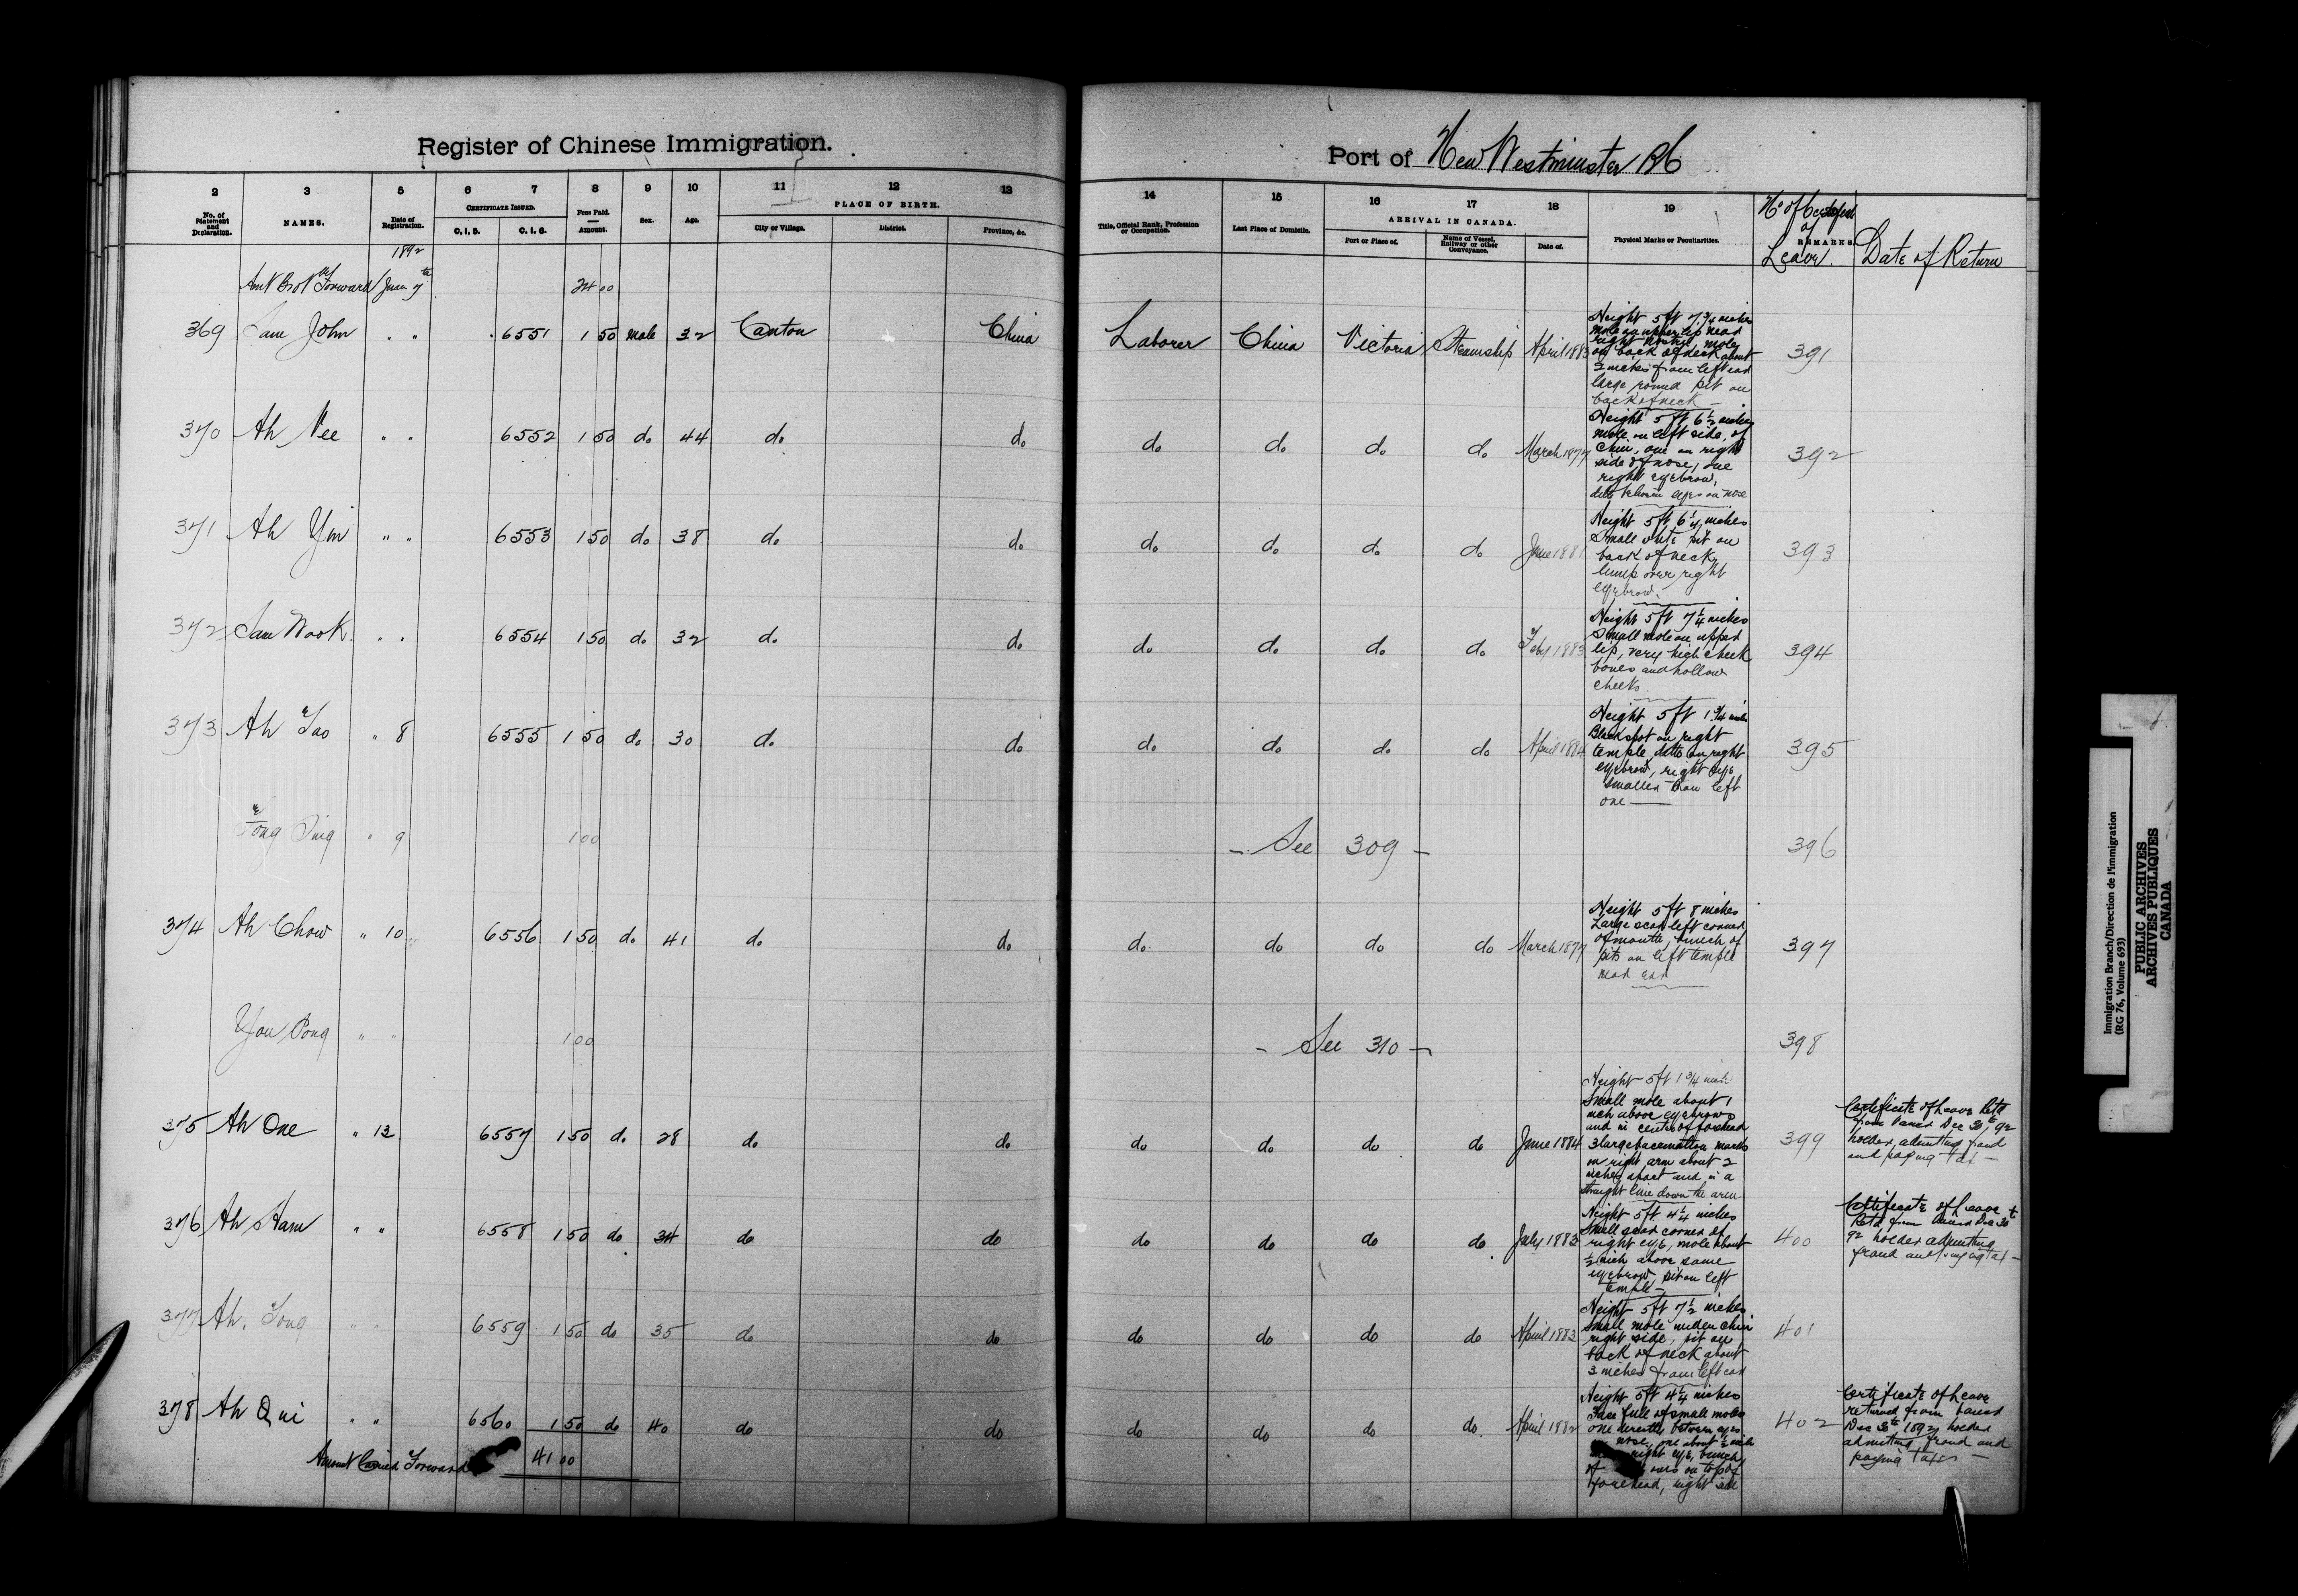 Register of Chinese Immigration.
Port of New Westminster BC
2 3 5 6 7 8 9 10 11 12 13 14 15 16 17 18 19
No. of Statement and Declaration. NAMES. Date of Registration. CERTIFICATE ISSUED. C. I. 5. C. I. 6. Fees Paid. Amount. Sex. Age. PLACE OF BIRTH. City or Village. District. Province, &c. Title, Official Rank, Profession or Occupation. Last Place of Domicile. ARRIVAL IN CANADA. Port or Place of. Name of Vessel, Railway or other Conveyance. Date of. Physical Marks or Peculiarities. No of of REMARKS. Leave. Date of Return
1892
Amt Brot Forward Jany 7th 24 00
369 Sam John " " 6551 1 50 male 32 Canton China Laborer China Victoria Steamship April 1883 391
Height 5 ft 7 3/4 inches
mole on upper lip near
right nostril, mole
on back of neck about
2 inches from left ear
large round pit on
back of neck —
370 Ah Nee " " 6552 1 50 do 44 do do do do do do March 1877 392
Height 5 ft 6 1/2 inches
mole on left side of
chin, one on right
side of nose, one
right eyebrow,
ditto between eyes on nose
371 Ah Yin " " 6553 1 50 do 38 do do do do do do June 1881 393
Height 5 ft 6 1/4 inches
Small white pit on
back of neck,
lump over right
eyebrow.
372 Sam Wook " " 6554 1 50 do 32 do do do do do do Feby 1883 394
Height 5 ft 7 1/4 inches
Small mole on upper
lip, very high cheek
bones and hollow
cheeks
373 Ah Tao " 8 6555 1 50 do 30 do do do do do do April 1884 395
Height 5 ft 1 3/4 inch
Black spot on right
temple, ditto on right
eyebrow, right eye
smaller than left
one —
Tong Sing " 9 1 00 — See 309 — 396
374 Ah Chow " 10 6556 1 50 do 41 do do do do do do March 1877 397
Height 5 ft 8 inches
Large scar left corner
of mouth, bunch of
pits on left temple
near ear
You Pong " " 1 00 — See 310 — 398
375 Ah One " 12 6557 1 50 do 28 do do do do do do June 1884 399
Height 5 ft 1 3/4 inch
Small mole about 1
inch above eyebrows
and in centre of forehead
3 large vaccination marks
on right arm about 2
inches apart and in a
straight line down the arm
Certificate of Leave Retd
from Dec 30th, 92
holder, admitting fraud
and paying tax —
376 Ah Ham " " 6558 1 50 do 34 do do do do do do July 1883 400
Height 5 ft 4 1/4 inches
Small scar corner of
right eye, mole about
1/2 inch above same
eyebrow, pit on left
temple —
Certificate of Leave
Retd from Dec 30th
92 holder admitting
fraud and paying tax —
377 Ah Tong " " 6559 1 50 do 35 do do do do do do April 1883 401
Height 5 ft 7 1/2 inches
Small mole under chin
right side, pit on
back of neck about
3 inches from left ear
378 Ah Qui " " 6560 1 50 do 40 do do do do do do April 1882 402
Height 5 ft 4 1/4 inches
Face full of small moles
one directly between eyes
nose, one about 1/2 inch
right eye, bunch
of on top of
forehead, right side
Certificate of Leave
returned from
Dec 30th 1892 holder
admitting fraud and
paying taxes —
Amount Carried Forward 41 00
Immigration Branch/Direction de l'Immigration
(RG 76, Volume 693)
PUBLIC ARCHIVES
ARCHIVES PUBLIQUES
CANADA